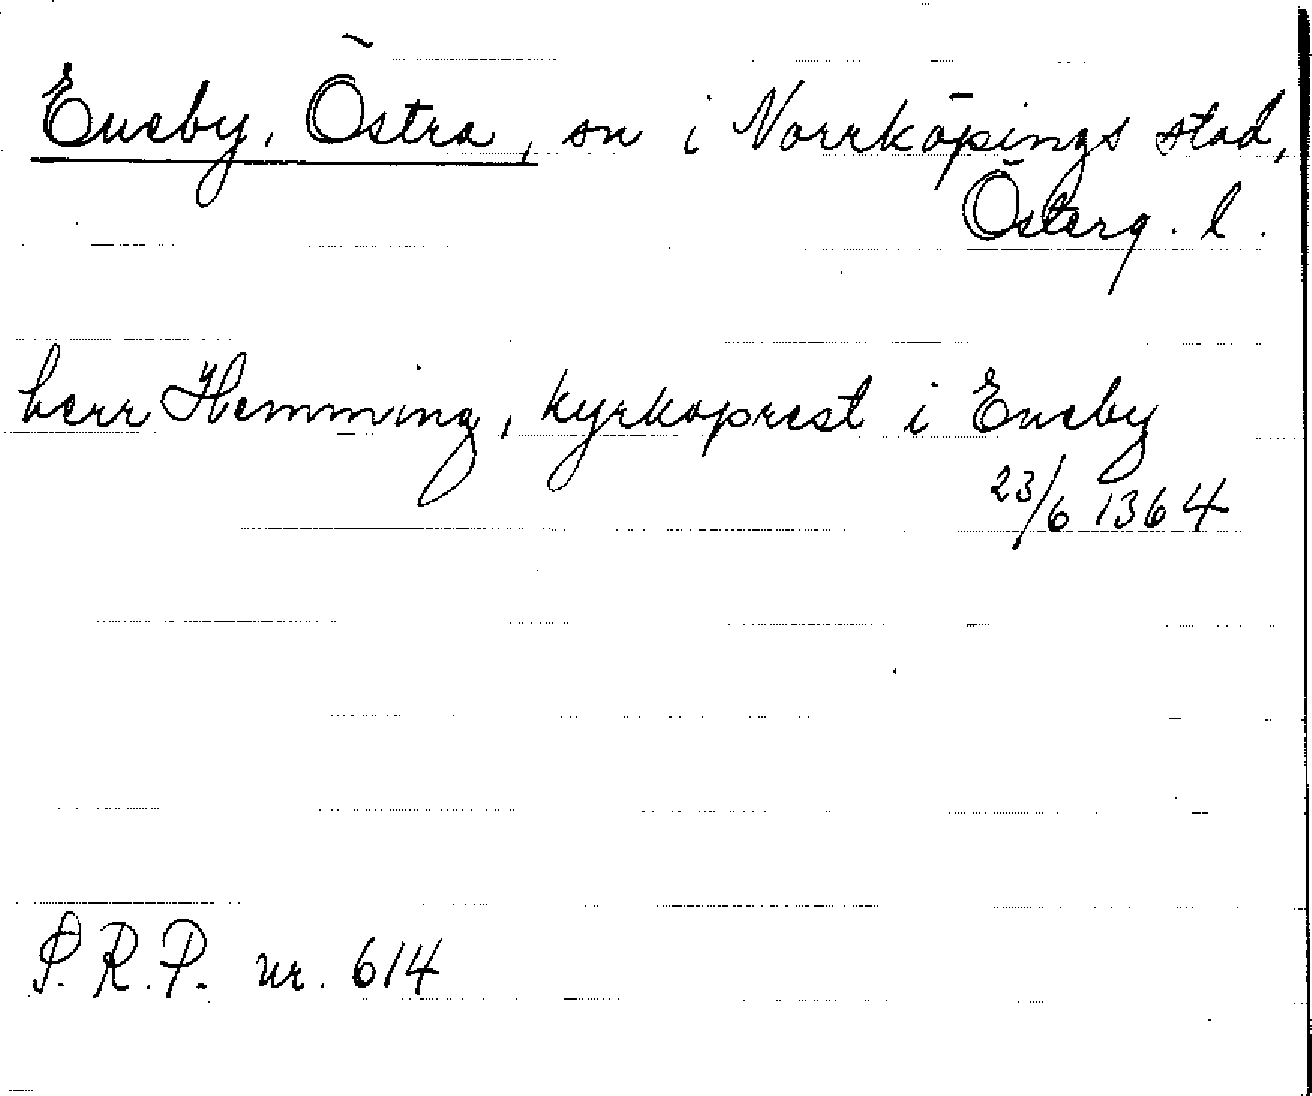 Eneby, Östra, sn i Norrköpings stad,
Österg. l.
herr Hemming, kyrkoprest i Eneby
23/6 1364
P.R.P. nr. 614